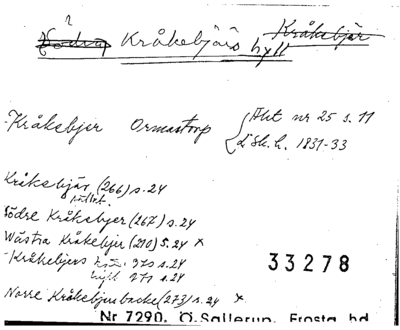 ?
Södra Kråkebjärs hyll Kråkebjär
Kråkebjer Ormastorp { Akt nr 25 s. 11
L.Sk. h. 1831-33
Kråkebjär (266) s.24
Södre Kråkebjer (267) s.24
Wästra Kråkebjer (210) s.24 x
Kråkebjers 370 s.24
hyll 271 s.24
33278
Norre Kråkebjersbacke (273) s.24 x
Nr 7290. Ö.Sallerup. Frosta hd